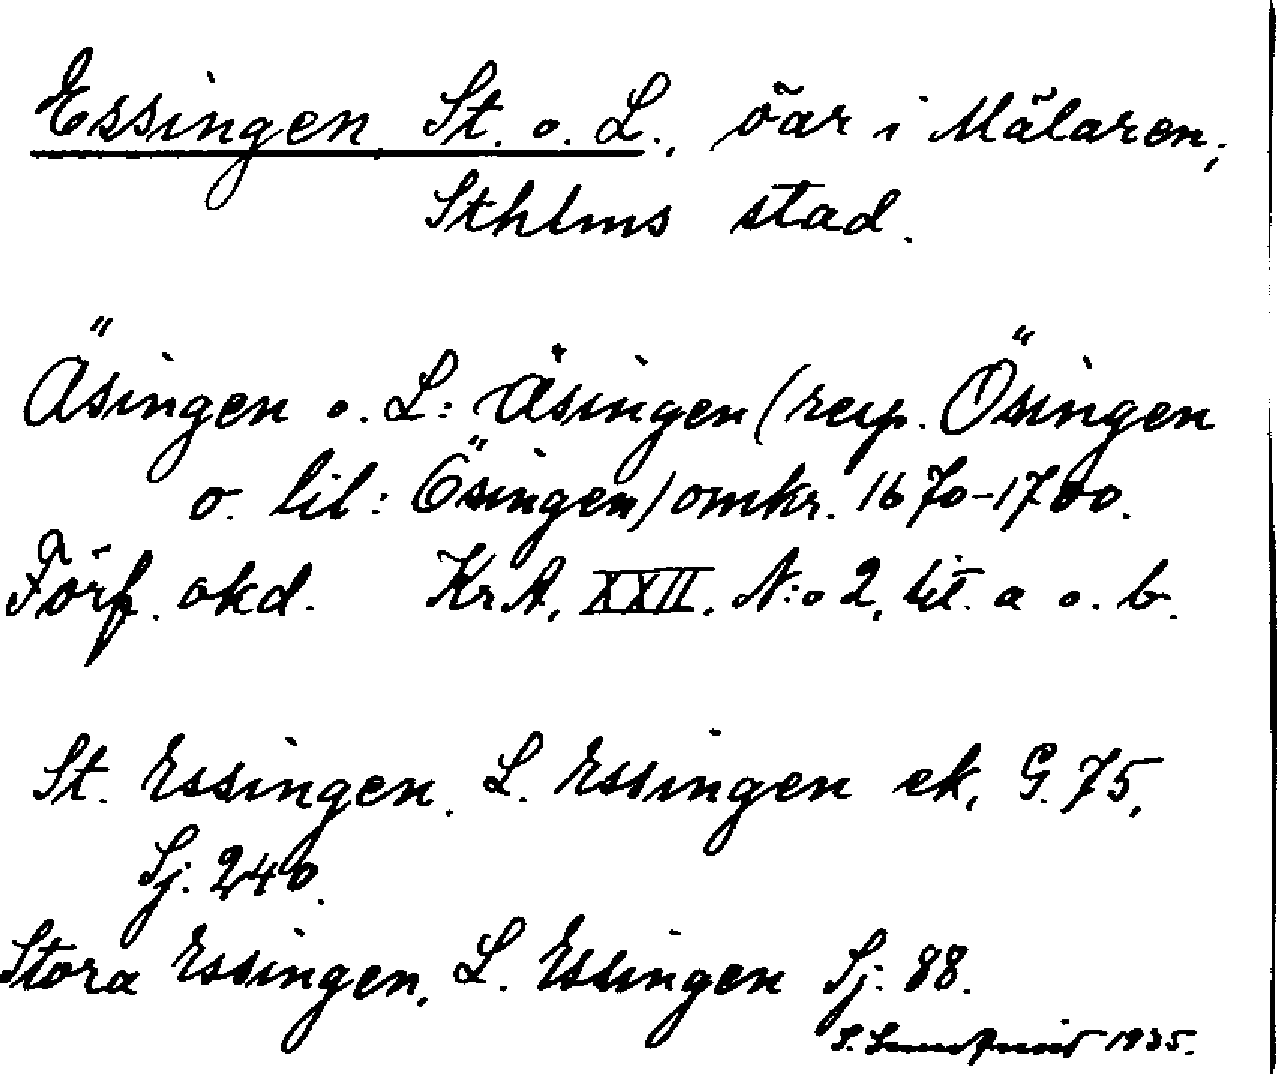 Essingen, St. o. L., öar i Mälaren,
Sthlms stad.
Äsingen o. L: Äsingen (resp. Ösingen
o. lil: Ösingen) omkr. 1670-1700.
Förf. okd. KrA, XXII. N:o 2, lit. a o. b.
St. Essingen. L. Essingen ek, G. 75,
Sj. 240.
Stora Essingen, L. Essingen Sj. 88.
1935.